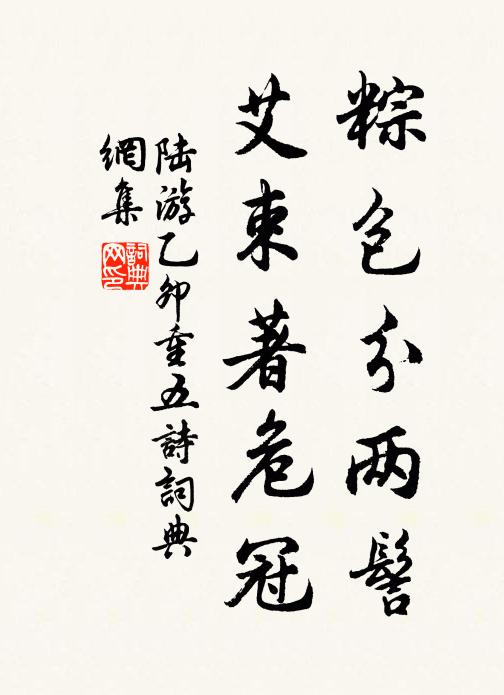 粽包分两髻
艾束著危冠
陆游乙卯重五詩詞典
網集
詞典
网印